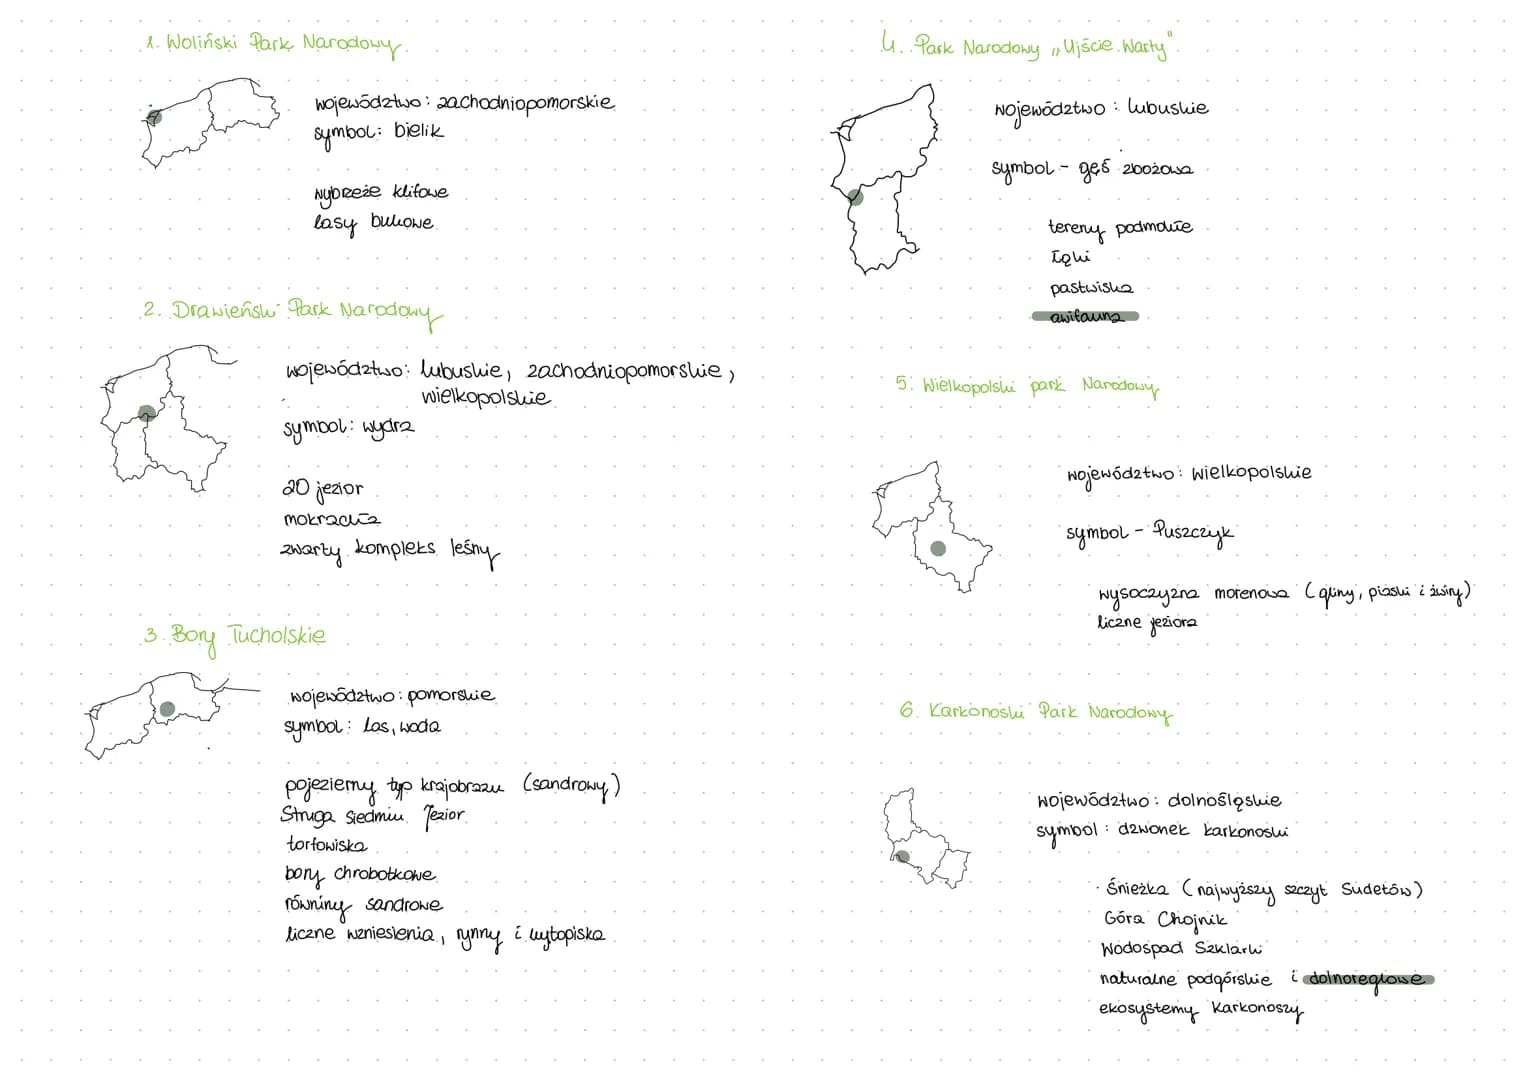 1. Woliński Park Narodowy
województwo: zachodniopomorskie
symbol: bielik
wybrzeże klifowe
lasy bukowe
2. Drawieński Park Narodowy
województwo: lubuskie, zachodniopomorskie,
wielkopolskie
symbol: wydra
20 jezior
mokradła
zwarty kompleks leśny
3. Bory Tucholskie
województwo: pomorskie
symbol: las, woda
pojezierny typ krajobrazu (sandrowy)
Struga Siedmiu Jezior
torfowiska
bory chrobotkowe
równiny sandrowe
liczne wzniesienia, rynny i wytopiska
4. Park Narodowy „Ujście Warty"
województwo: lubuskie
symbol - gęś zbożowa
tereny podmokłe
łąki
pastwiska
awifauna
5. Wielkopolski park Narodowy
województwo: wielkopolskie
symbol - Puszczyk
wysoczyzna morenowa (gliny, piaski i żwiry)
liczne jeziora
6. Karkonoski Park Narodowy
województwo: dolnośląskie
symbol: dzwonek karkonoski
Śnieżka (najwyższy szczyt Sudetów)
Góra Chojnik
Wodospad Szklarki
naturalne podgórskie i dolnoreglowe
ekosystemy Karkonoszy